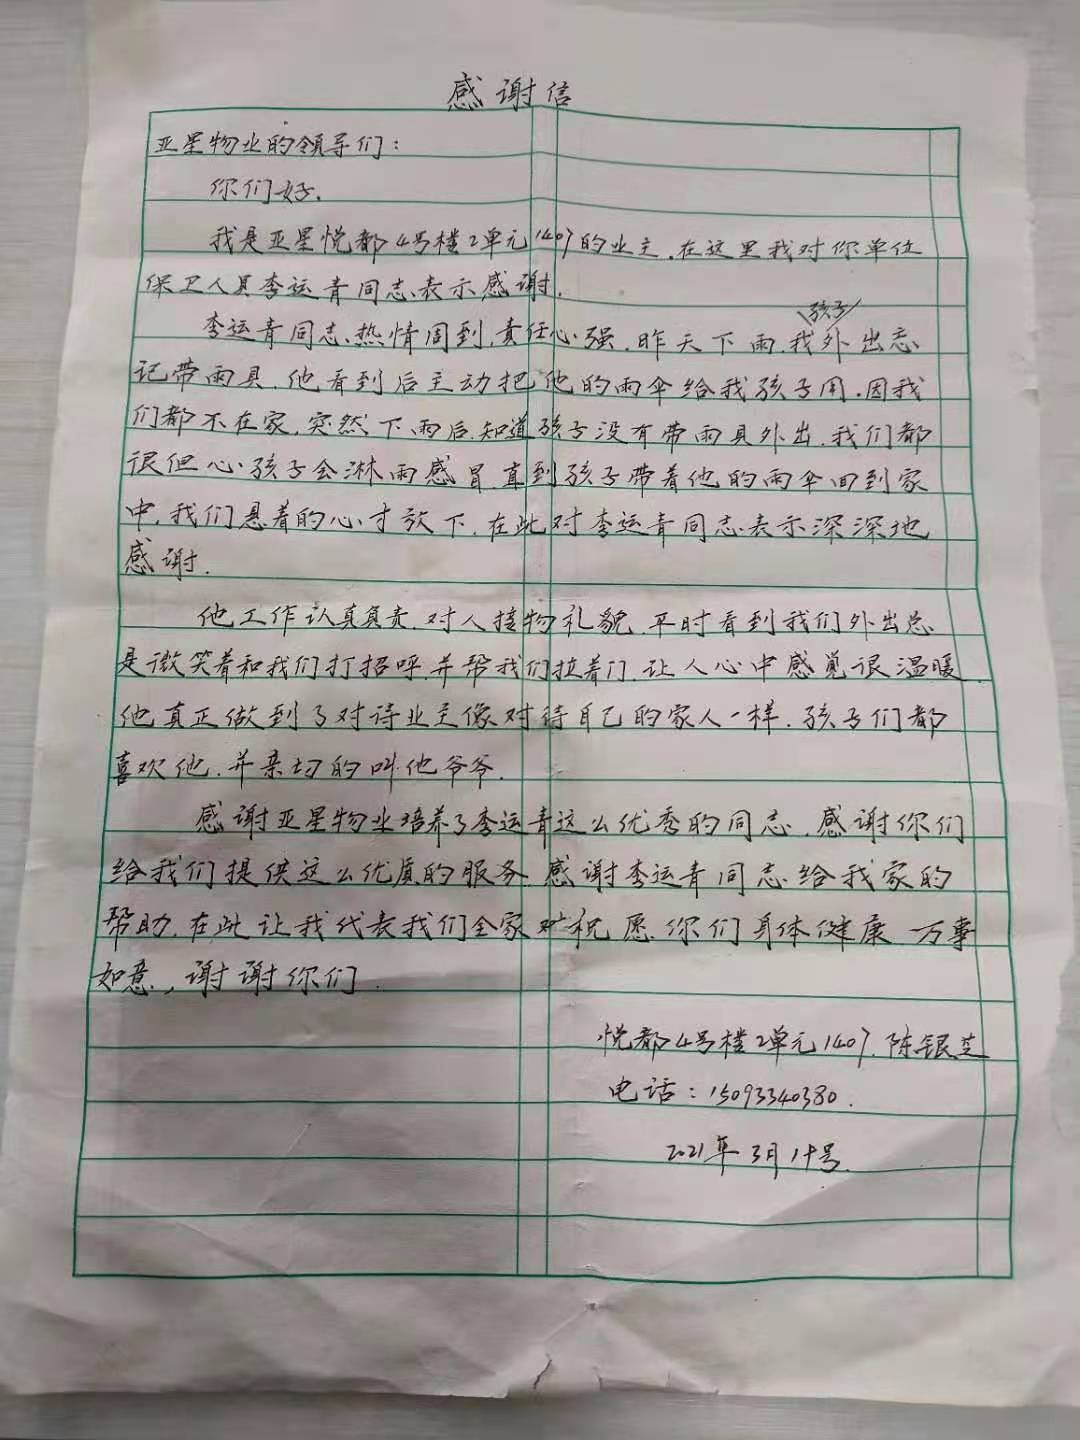 感谢信
亚星物业的领导们：
你们好.
我是亚星悦都4号楼2单元1407的业主.在这里我对你单位
保卫人员李运青同志表示感谢.
孩子
李运青同志热情周到,责任心强.昨天下雨.我外出忘
记带雨具.他看到后主动把他的雨伞给我孩子用.因我
们都不在家.突然下雨后.知道孩子没有带雨具外出.我们都
很但心孩子会淋雨感冒.直到孩子带着他的雨伞回到家
中,我们悬着的心才放下.在此对李运青同志表示深深地
感谢.
他工作认真负责.对人接物礼貌.平时看到我们外出总
是微笑着和我们打招呼.并帮我们拉着门.让人心中感觉很温暖.
他真正做到了对待业主像对待自己的家人一样.孩子们都
喜欢他.并亲切的叫他爷爷.
感谢亚星物业培养了李运青这么优秀的同志.感谢你们
给我们提供这么优质的服务.感谢李运青同志给我家的
帮助.在此让我代表我们全家 祝愿你们身体健康 万事
如意,谢谢你们.
悦都4号楼2单元1407.陈银芝
电话：15093340380.
2021年3月1十号.